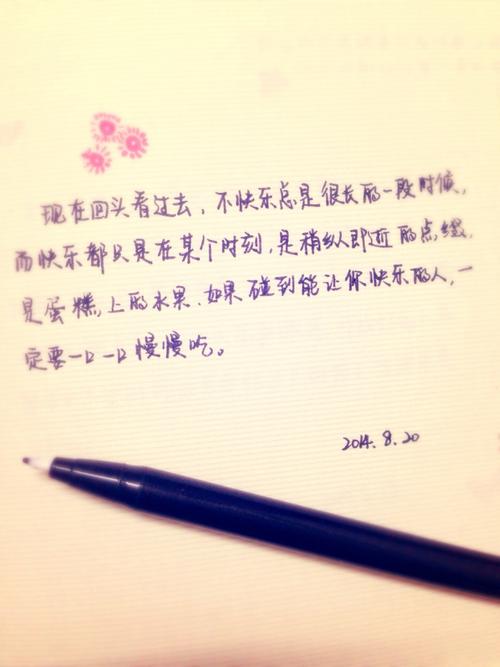 现在回头看过去，不快乐总是很长的一段时候，
而快乐都只是在某个时刻，是稍纵即逝的点缀，
是蛋糕上的水果。如果碰到能让你快乐的人，一
定要一口一口慢慢吃。
2014.8.20